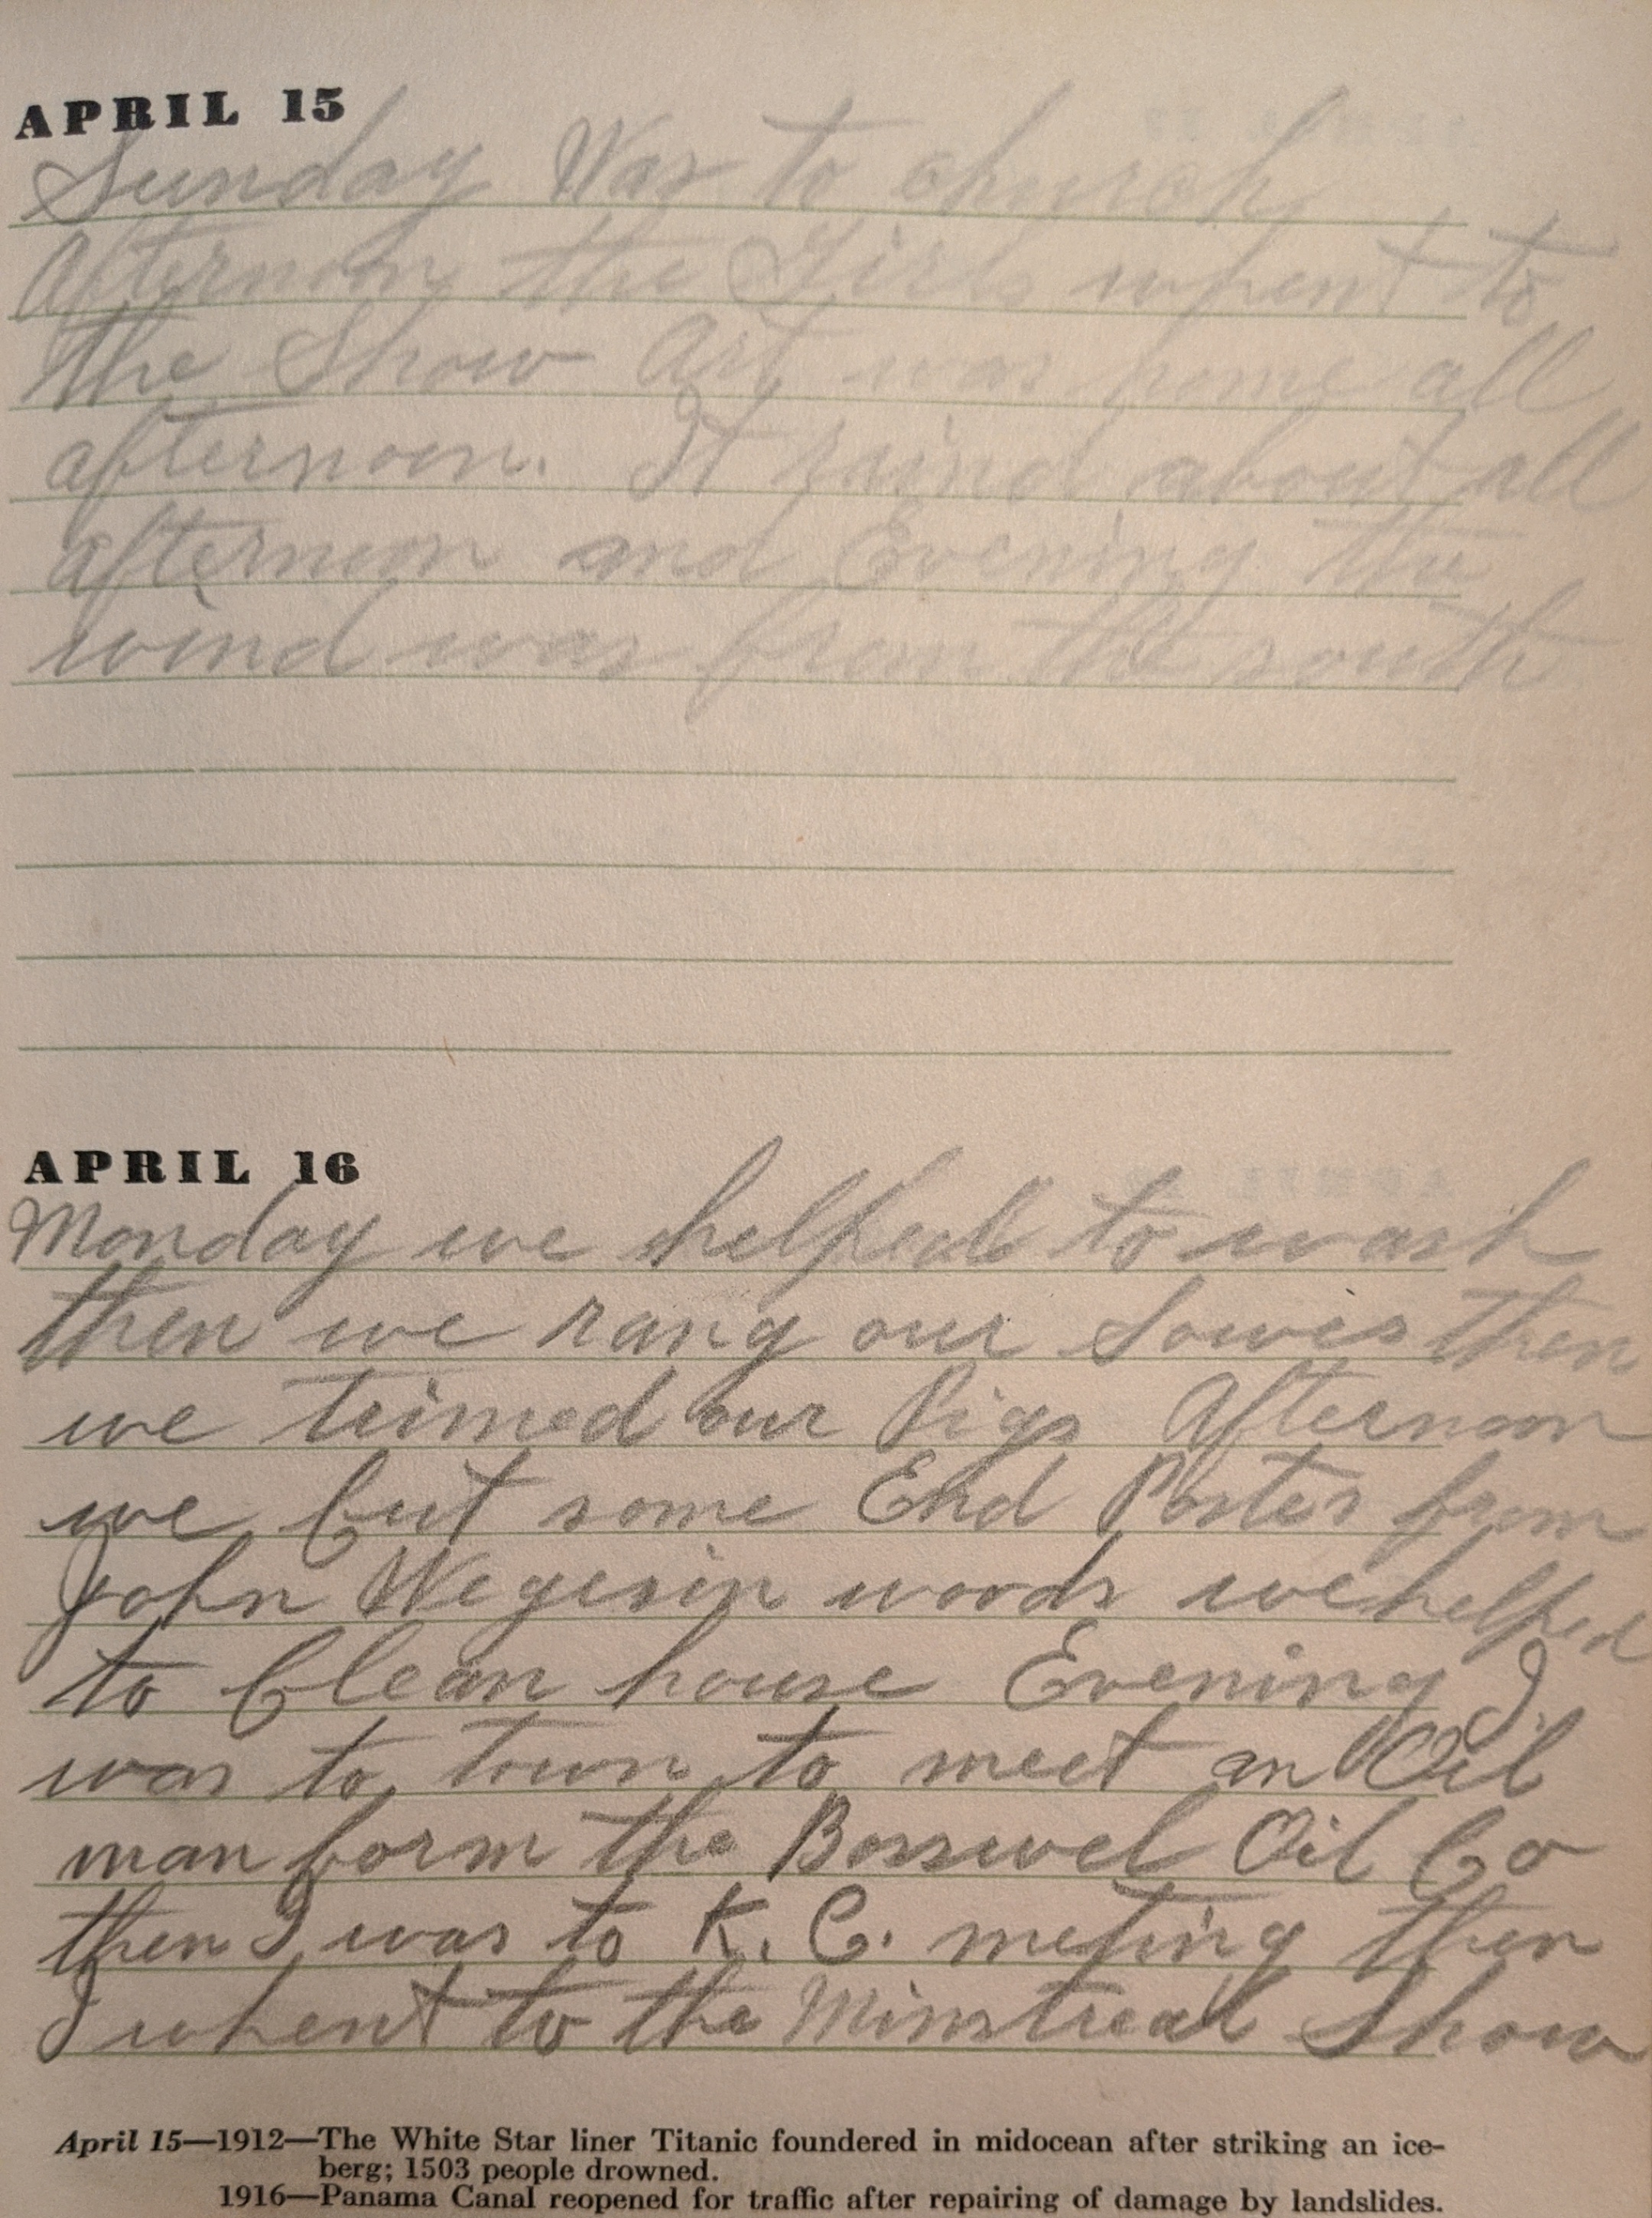 APRIL 15
Sunday Was to church
Afternoon the Girls whent to
the Show Art was home all
afternoon. It raind about all
afternoon and Evening the
wind was from the south
APRIL 16
Monday we helped to wash
then we rang our Sowes then
we trimed our Pigs Afternoon
we Cut some End Postes from
John Wegesin woods we helped
to Clean house Evening I
was to town to meet an Oil
man form the Bosswel Oil Co
then I was to K. C. meting then
I whent to the Minstreal Show
April 15—1912—The White Star liner Titanic foundered in midocean after striking an ice-
berg; 1503 people drowned.
1916—Panama Canal reopened for traffic after repairing of damage by landslides.